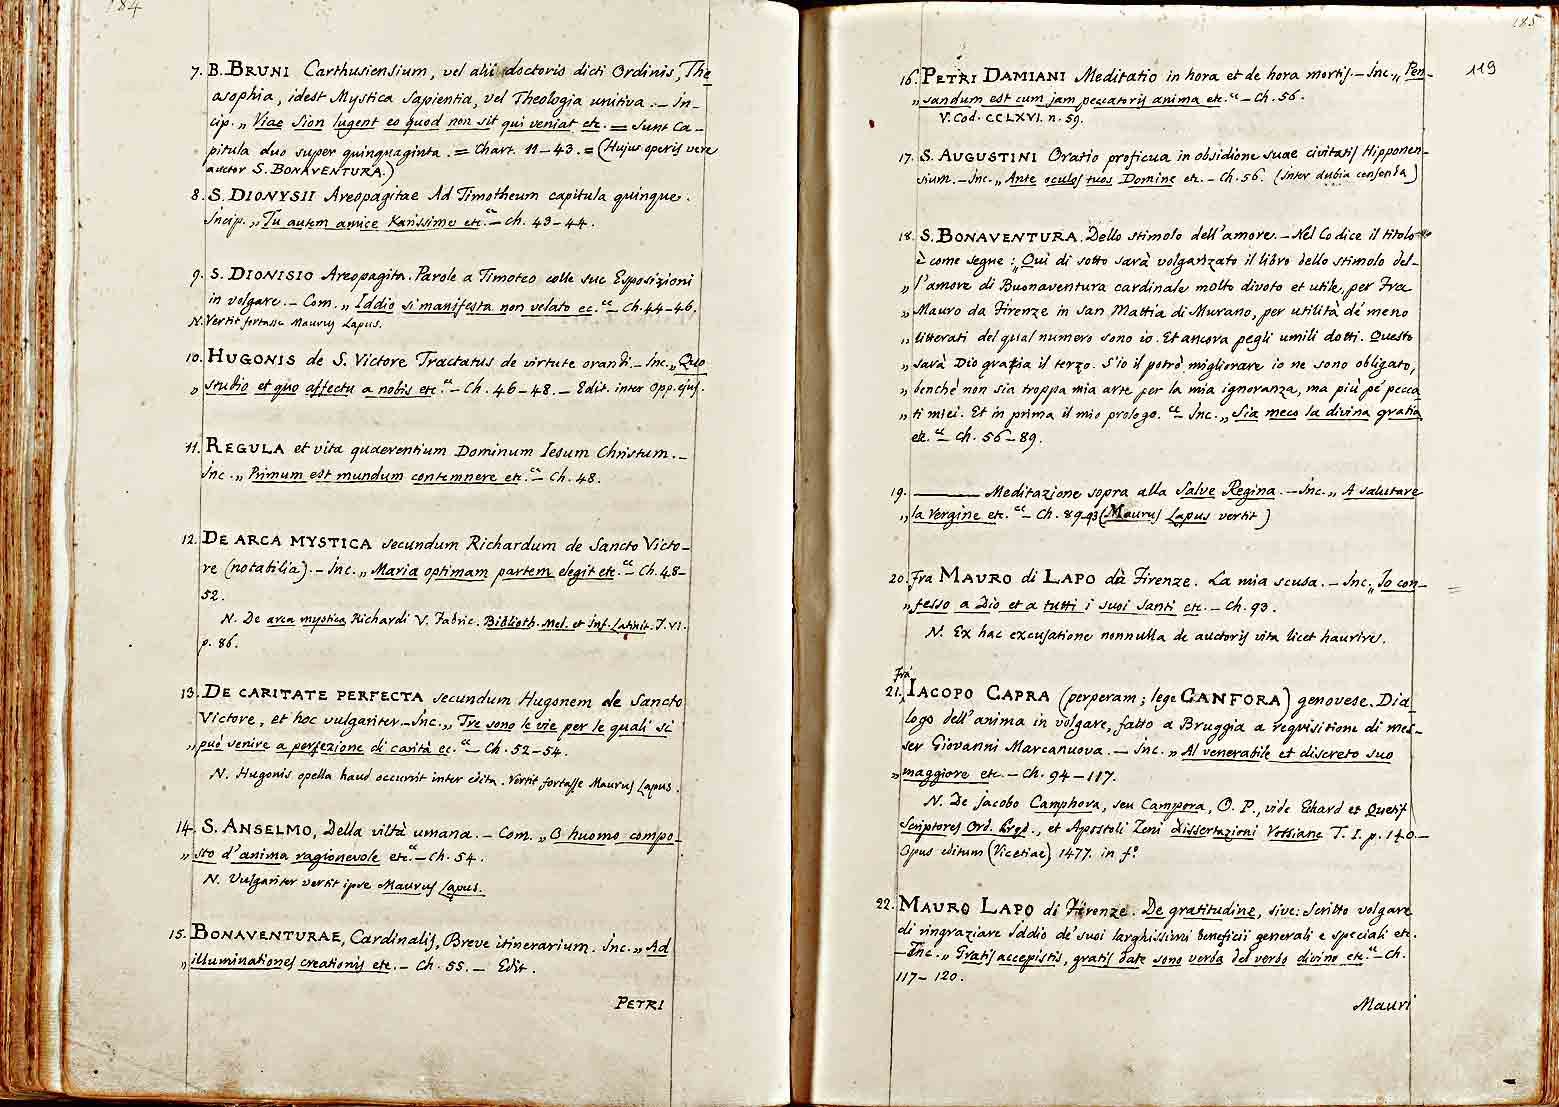 184
7. B. BRUNI Carthusiensium, vel alii doctoris dicti Ordinis, The
osophia, idest Mystica Sapientia, vel Theologia unitiva. — In-
cip. „ Viae Sion lugent eo quod non sit qui veniat etc. = Sunt Ca-
pitula duo super quinquaginta. = Chart. 11-43. = (Hujus operis vere
auctor S. BONAVENTURA.)
8. S. DIONYSII Areopagitae Ad Timotheum capitula quinque.
Incip. „ Tu autem amice Karissime etc.“ — Ch. 43-44.
9. S. DIONISIO Areopagita. Parole a Timoteo colle sue Esposizioni
in volgare. — Com. „ Iddio si manifesta non velato ec.“ — Ch. 44-46.
N. Vertit fortasse Maurus Lapus.
10. HUGONIS de S. Victore Tractatus de virtute orandi. — Inc. „ Quo
„ studio et quo affectu a nobis etc.“ — Ch. 46-48. — Edit. inter Opp. ejus.
11. REGULA et vita quaerentium Dominum Iesum Christum. —
Inc. „ Primum est mundum contemnere etc.“ — Ch. 48.
12. DE ARCA MYSTICA secundum Richardum de Sancto Victo-
re (notabilia). — Inc. „ Maria optimam partem elegit etc.“ — Ch. 48-
52.
N. De arca mystica Richardi V. Fabric. Biblioth. Med. et Inf. Latinit. T. VI.
p. 86.
13. DE CARITATE PERFECTA secundum Hugonem de Sancto
Victore, et hoc vulgariter. — Inc. „ Tre sono le vie per le quali si
„ può venire a perfezione di carità ec.“ — Ch. 52-54.
N. Hugonis opella haud occurrit inter edita. Vertit fortasse Maurus Lapus.
14. S. ANSELMO, Della viltà umana. — Com. „ O huomo compo-
„ sto d'anima ragionevole etc.“ — Ch. 54.
N. Vulgariter vertit ipse Maurus Lapus.
15. BONAVENTURAE, Cardinalis, Breve itinerarium. Inc. „ Ad
„ illuminationes creationis etc. — Ch. 55. — Edit.
PETRI
185
119
16. PETRI DAMIANI Meditatio in hora et de hora mortis. — Inc. „ Pen-
„ sandum est cum jam peccatoris anima etc.“ — Ch. 56.
V. Cod. CCLXVI. n. 59.
17. S. AUGUSTINI Oratio proficua in obsidione suae civitatis Hipponen-
sium. — Inc. „ Ante oculos tuos Domine etc. — Ch. 56. (Inter dubia censenda)
18. S. BONAVENTURA. Dello stimolo dell'amore. — Nel Codice il titolo
è come segue: „ Qui di sotto sarà volgarizato il libro dello stimolo del-
„ l'amore di Buonaventura cardinale molto divoto et utile, per Fra
„ Mauro da Firenze in San Mattia di Murano, per utilità de' meno
„ litterati del qual numero sono io. Et ancora pegli umili dotti. Questo
„ sarà Dio grazia il terzo. S'io il potrò migliorare io ne sono obligato,
„ benchè non sia troppa mia arte per la mia ignoranza, ma più pe' pecca
„ ti miei. Et in prima il mio prologo.“ — Inc. „ Sia meco la divina gratia
etc.“ — Ch. 56-89.
19. ——— Meditazione sopra alla Salve Regina. — Inc. „ A salutare
„ la Vergine etc.“ — Ch. 89-93 (Maurus Lapus vertit)
20. Fra MAURO di LAPO da Firenze. La mia scusa. — Inc. „ Io con-
„ fesso a Dio et a tutti i suoi santi etc. — Ch. 93.
N. Ex hac excusatione nonnulla de auctoris vita licet haurire.
Fra
21. IACOPO CAPRA (perperam; lege CANFORA) genovese. Dia-
logo dell'anima in volgare, fatto a Bruggia a requisitione di mes-
ser Giovanni Marcanuova. — Inc. „ Al venerabile et discreto suo
„ maggiore etc. — Ch. 94-117.
N. De Jacobo Camphora, seu Campora, O. P., vide Echard et Quetif
Scriptores Ord. Pred., et Apostoli Zeni dissertazioni Vossiane T. I. p. 140 —
Opus editum (Vicetiae) 1477. in fº
22. MAURO LAPO di Firenze. De gratitudine, sive: Scritto volgare
di ringraziare Iddio de' suoi larghissimi beneficii generali e speciali etc.
— Inc. „ Gratis accepistis, gratis date sono verba del verbo divino etc.“ — Ch.
117-120.
Mauri